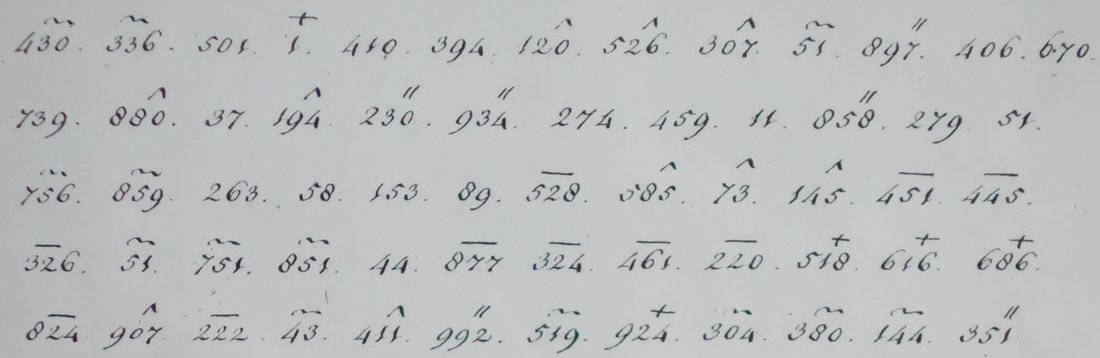 430̃. 336̃. 501. 1⁺. 410. 394. 120̂. 526̂. 307̂. 51̃. 897″. 406. 670.
739. 880̂. 37. 194̂. 230″. 934″. 274. 459. 11. 858″. 279. 51.
756̃. 859̃. 263. 58. 153. 89. 528̅. 585̂. 73̂. 145̂. 451̅. 445̅.
326̅. 51̃. 751̃. 851̃. 44. 877̅ 324̅. 461̅. 220̅. 518⁺. 616⁺. 686⁺.
824̅ 907̂. 222̅. 43̃. 411̂. 992″. 519̃. 924⁺. 304̃. 380̃. 144̃. 351″